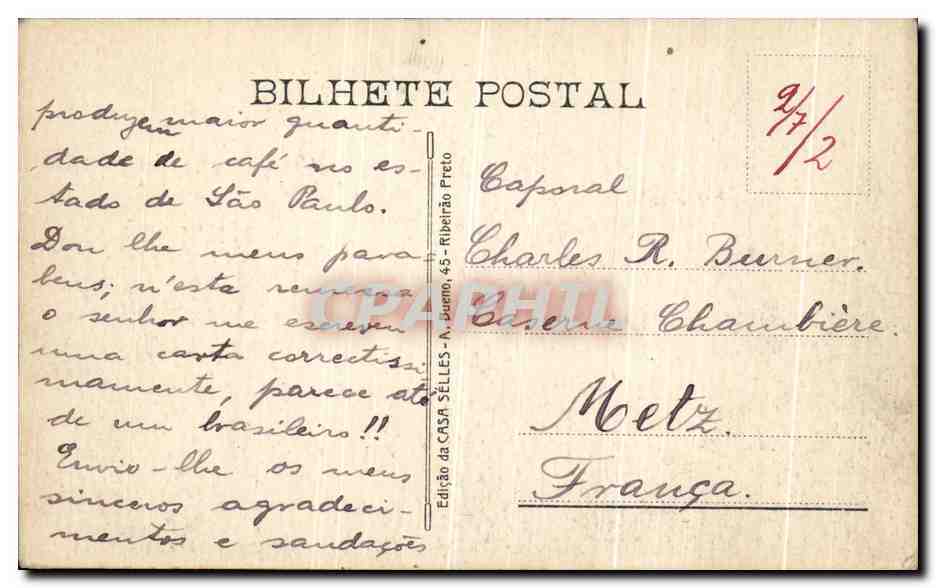 BILHETE POSTAL
produzem maior quanti-
dade de café no es-
tado de São Paulo.
Dou lhe meus para-
bens; n'esta remessa
o senhor me escreveu
uma carta correctissi
mamente, parece até
de um brasileiro!!
Envio-lhe os meus
sinceros agradeci-
mentos e saudações
Edição da CASA SELLES - A. Bueno, 45 - Ribeirão Preto
9/7/2
Caporal
Charles R. Burner.
Caserne Chambière.
Metz.
França.
CPARHTI